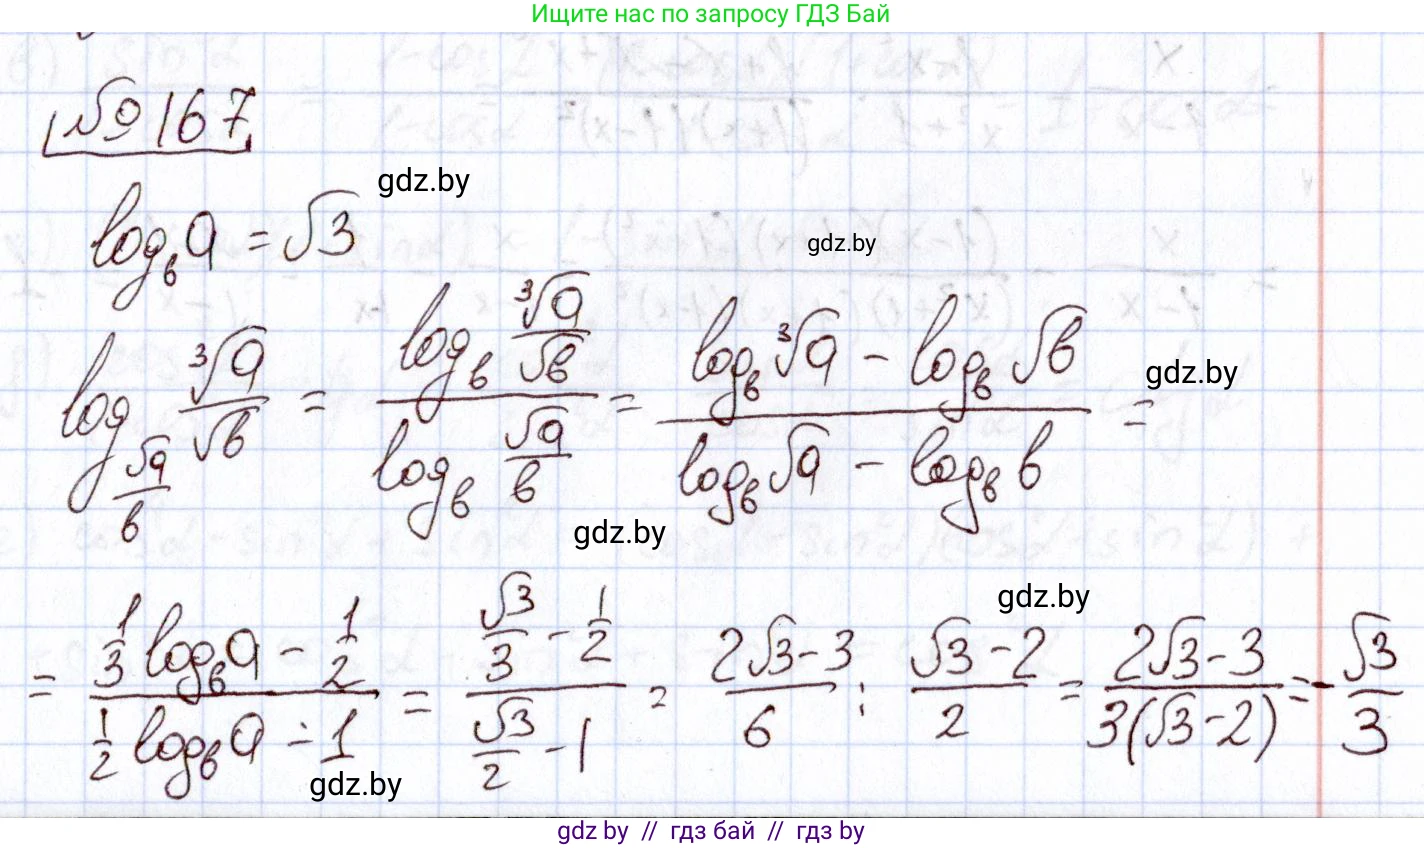 Ищите нас по запросу ГДЗ Бай
№167
gdz.by
log_в a = √3
gdz.by
log_(√a/в) (∛a/√в) = (log_в (∛a/√в))/(log_в (√a/в)) = (log_в ∛a - log_в √в)/(log_в √a - log_в в) =
gdz.by
gdz.by
gdz.by
= (1/3 log_в a - 1/2)/(1/2 log_в a - 1) = (√3/3 - 1/2)/(√3/2 - 1) = (2√3-3)/6 : (√3-2)/2 = (2√3-3)/(3(√3-2)) = -√3/3
gdz.by
gdz by // гдз бай // гдз by